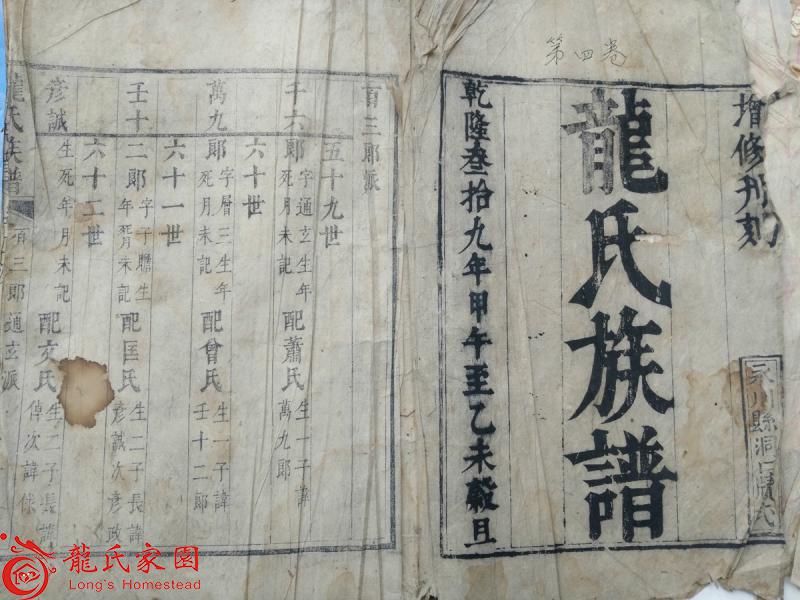 第四卷
增修刊刻
龍氏族譜
乾隆叁拾九年甲午至乙未穀旦
百三郎派
五十九世
千六郎 字通玄生年死月未記 配蕭氏 生一子諱萬九郎
六十世
萬九郎 字層三生年死月未記 配曾氏 生一子諱壬十二郎
六十一世
壬十二郎 字子瞻生年死月未記 配匡氏 生二子長諱彥誠次彥政
六十二世
彥誠 生死年月未記 配文氏 生二子長諱倬次諱
龍氏族譜
百三郎通玄派
龍氏家園
Long's Homestead